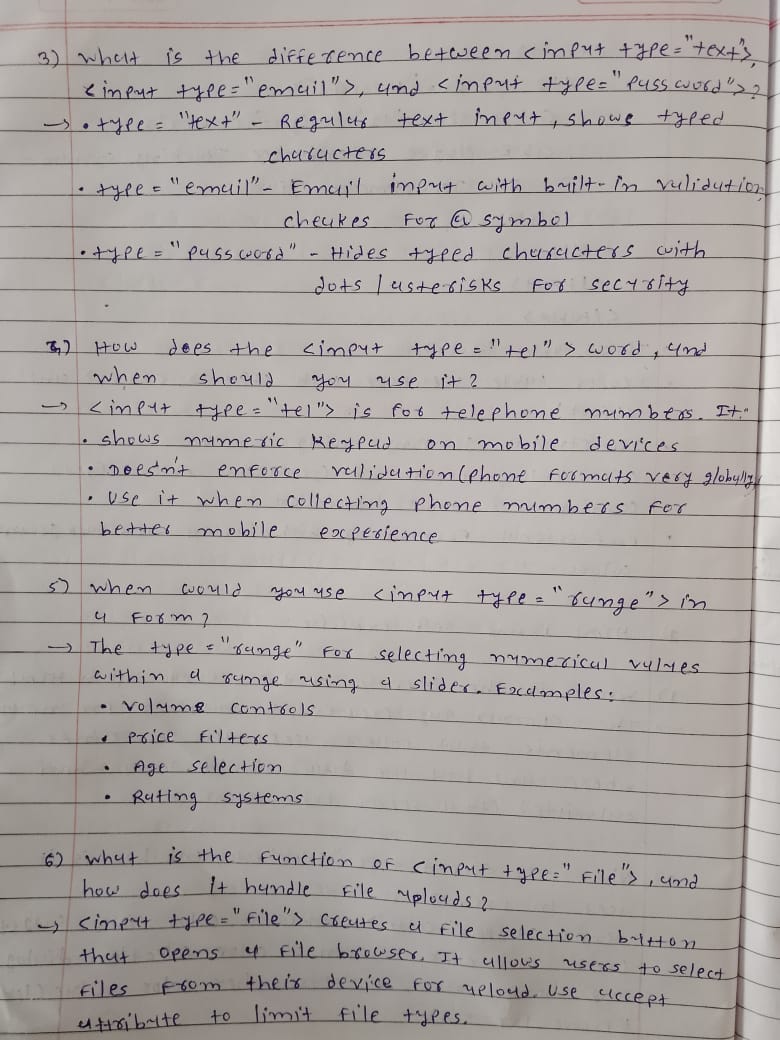 3) what is the difference between <input type="text">,
<input type="email">, and <input type="password">?
→ • type = "text" - Regular text input, shows typed
characters
• type = "email" - Email input with built-in validation
cheukes For @ symbol
• type = "password" - Hides typed characters with
dots / asterisks For security
4) How does the <input type = "tel" > word, and
when should you use it?
→ <input type="tel"> is for telephone numbers. It:
• shows numeric keypad on mobile devices
• Doesn't enforce validation (phone formats very globally)
• Use it when collecting phone numbers for
better mobile experience
5) when would you use <input type = "range"> in
a Form?
→ The type = "range" For selecting numerical values
within a range using a slider. Examples:
• volume controls
• price filters
• Age selection
• Rating systems
6) what is the Function OF <input type="File">, and
how does it handle File uploads?
→ <input type="File"> creates a File selection button
that opens a File browser. It allows users to select
Files From their device For upload. Use accept
attribute to limit File types.